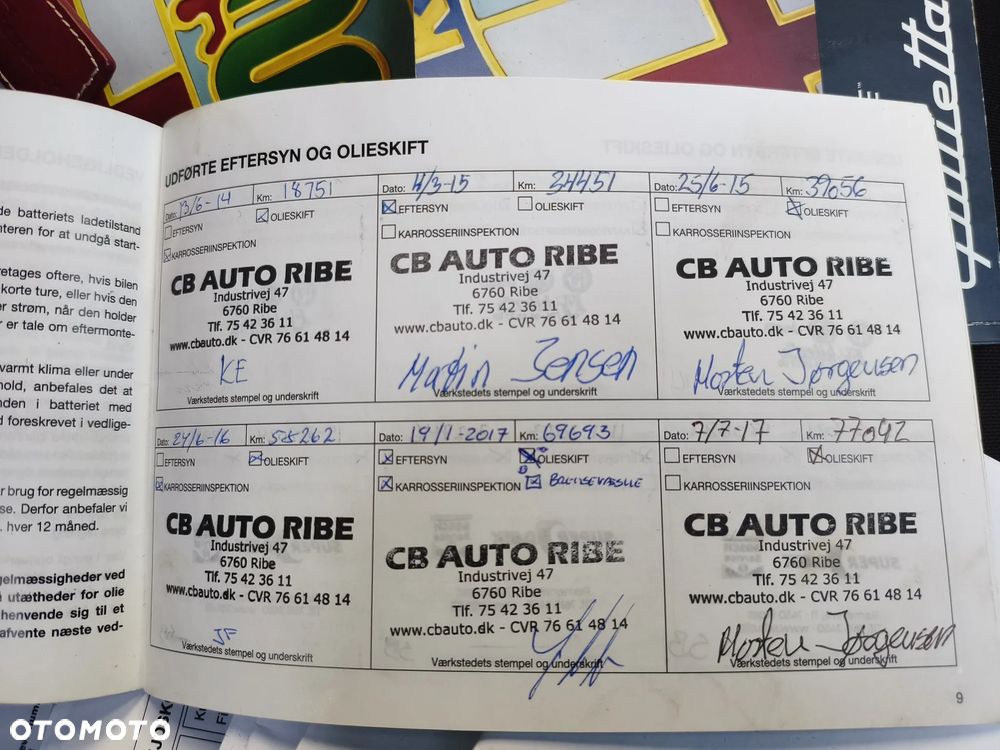 Giulietta
de batteriets ladetilstand
nteren for at undgå start-
retages oftere, hvis bilen
korte ture, eller hvis den
er strøm, når den holder
r er tale om eftermonte-
varmt klima eller under
hold, anbefales det at
nden i batteriet med
d foreskrevet i vedlige-
r brug for regelmæssig
se. Derfor anbefaler vi
. hver 12 måned.
gelmæssigheder ved
utætheder for olie
henvende sig til et
afvente næste ved-
UDFØRTE EFTERSYN OG OLIESKIFT
Dato: 13/6-14 Km: 18751
EFTERSYN OLIESKIFT
KARROSSERIINSPEKTION
CB AUTO RIBE
Industrivej 47
6760 Ribe
Tlf. 75 42 36 11
www.cbauto.dk - CVR 76 61 48 14
KE
Værkstedets stempel og underskrift
Dato: 4/3-15 Km: 34451
EFTERSYN OLIESKIFT
KARROSSERIINSPEKTION
CB AUTO RIBE
Industrivej 47
6760 Ribe
Tlf. 75 42 36 11
www.cbauto.dk - CVR 76 61 48 14
Martin Jensen
Værkstedets stempel og underskrift
Dato: 25/6-15 Km: 39056
EFTERSYN OLIESKIFT
KARROSSERIINSPEKTION
CB AUTO RIBE
Industrivej 47
6760 Ribe
Tlf. 75 42 36 11
www.cbauto.dk - CVR 76 61 48 14
Morten Jørgensen
Værkstedets stempel og underskrift
Dato: 24/6-16 Km: 55262
EFTERSYN OLIESKIFT
KARROSSERIINSPEKTION
CB AUTO RIBE
Industrivej 47
6760 Ribe
Tlf. 75 42 36 11
www.cbauto.dk - CVR 76 61 48 14
JF
Værkstedets stempel og underskrift
Dato: 19/1-2017 Km: 69693
EFTERSYN OLIESKIFT
KARROSSERIINSPEKTION BREMSEVÆSKE
CB AUTO RIBE
Industrivej 47
6760 Ribe
Tlf. 75 42 36 11
www.cbauto.dk - CVR 76 61 48 14
Værkstedets stempel og underskrift
Dato: 7/7-17 Km: 77042
EFTERSYN OLIESKIFT
KARROSSERIINSPEKTION
CB AUTO RIBE
Industrivej 47
6760 Ribe
Tlf. 75 42 36 11
www.cbauto.dk - CVR 76 61 48 14
Morten Jørgensen
Værkstedets stempel og underskrift
9
OTOMOTO